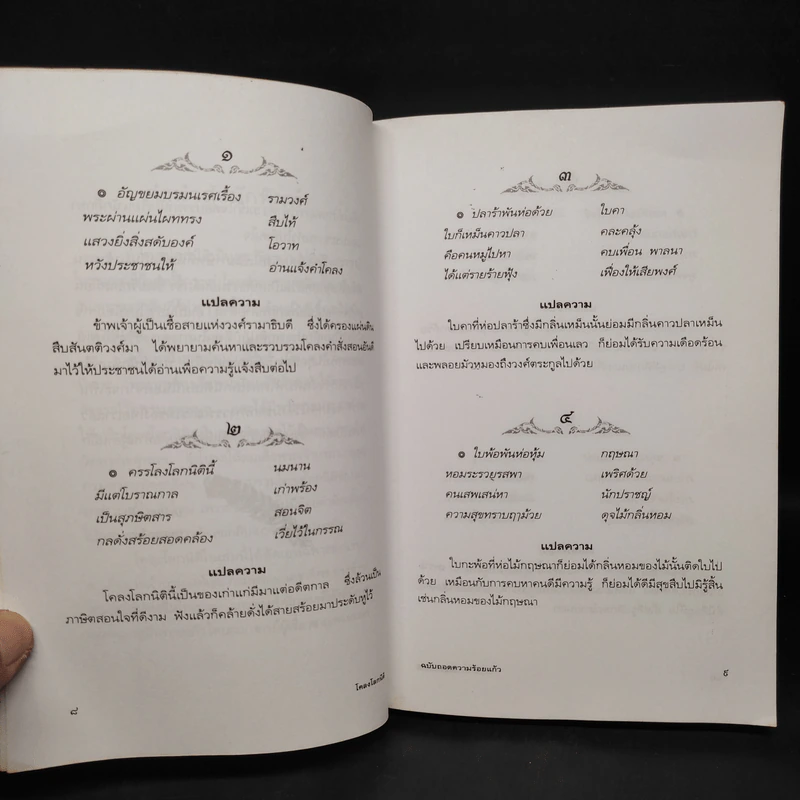 ๑
๏ อัญขยมบรมนเรศเรื้อง รามวงศ์
พระผ่านแผ่นไผททรง สืบไท้
แสวงยิ่งสิ่งสดับองค์ โอวาท
หวังประชาชนให้ อ่านแจ้งคำโคลง
แปลความ
ข้าพเจ้าผู้เป็นเชื้อสายแห่งวงศ์รามาธิบดี ซึ่งได้ครองแผ่นดิน
สืบสันตติวงศ์มา ได้พยายามค้นหาและรวบรวมโคลงคำสั่งสอนอันดี
มาไว้ให้ประชาชนได้อ่านเพื่อความรู้แจ้งสืบต่อไป
๒
๏ ครรโลงโลกนิตินี้ นมนาน
มีแต่โบราณกาล เก่าพร้อง
เป็นสุภษิตสาร สอนจิต
กลดั่งสร้อยสอดคล้อง เวี่ยไว้ในกรรณ
แปลความ
โคลงโลกนิตินี้เป็นของเก่าแก่มีมาแต่อดีตกาล ซึ่งล้วนเป็น
ภาษิตสอนใจที่ดีงาม ฟังแล้วก็คล้ายดั่งได้สายสร้อยมาประดับหูไว้
โคลงโลกนิติ
๘
๓
๏ ปลาร้าพันห่อด้วย ใบคา
ใบก็เหม็นคาวปลา คละคลุ้ง
คือคนหมู่ไปหา คบเพื่อน พาลนา
ได้แต่รายร้ายฟุ้ง เฟื่องให้เสียพงศ์
แปลความ
ใบคาที่ห่อปลาร้าซึ่งมีกลิ่นเหม็นนั้นย่อมมีกลิ่นคาวปลาเหม็น
ไปด้วย เปรียบเหมือนการคบเพื่อนเลว ก็ย่อมได้รับความเดือดร้อน
และพลอยมัวหมองถึงวงศ์ตระกูลไปด้วย
๔
๏ ใบพ้อพันห่อหุ้ม กฤษณา
หอมระรวยรสพา เพริศด้วย
คนเสพเสน่หา นักปราชญ์
ความสุขทราบฤๅม้วย ดุจไม้กลิ่นหอม
แปลความ
ใบกะพ้อที่ห่อไม้กฤษณาก็ย่อมได้กลิ่นหอมของไม้นั้นติดใบไป
ด้วย เหมือนกับการคบหาคนดีมีความรู้ ก็ย่อมได้ดีมีสุขสืบไปมิรู้สิ้น
เช่นกลิ่นหอมของไม้กฤษณา
ฉบับถอดความร้อยแก้ว
๙